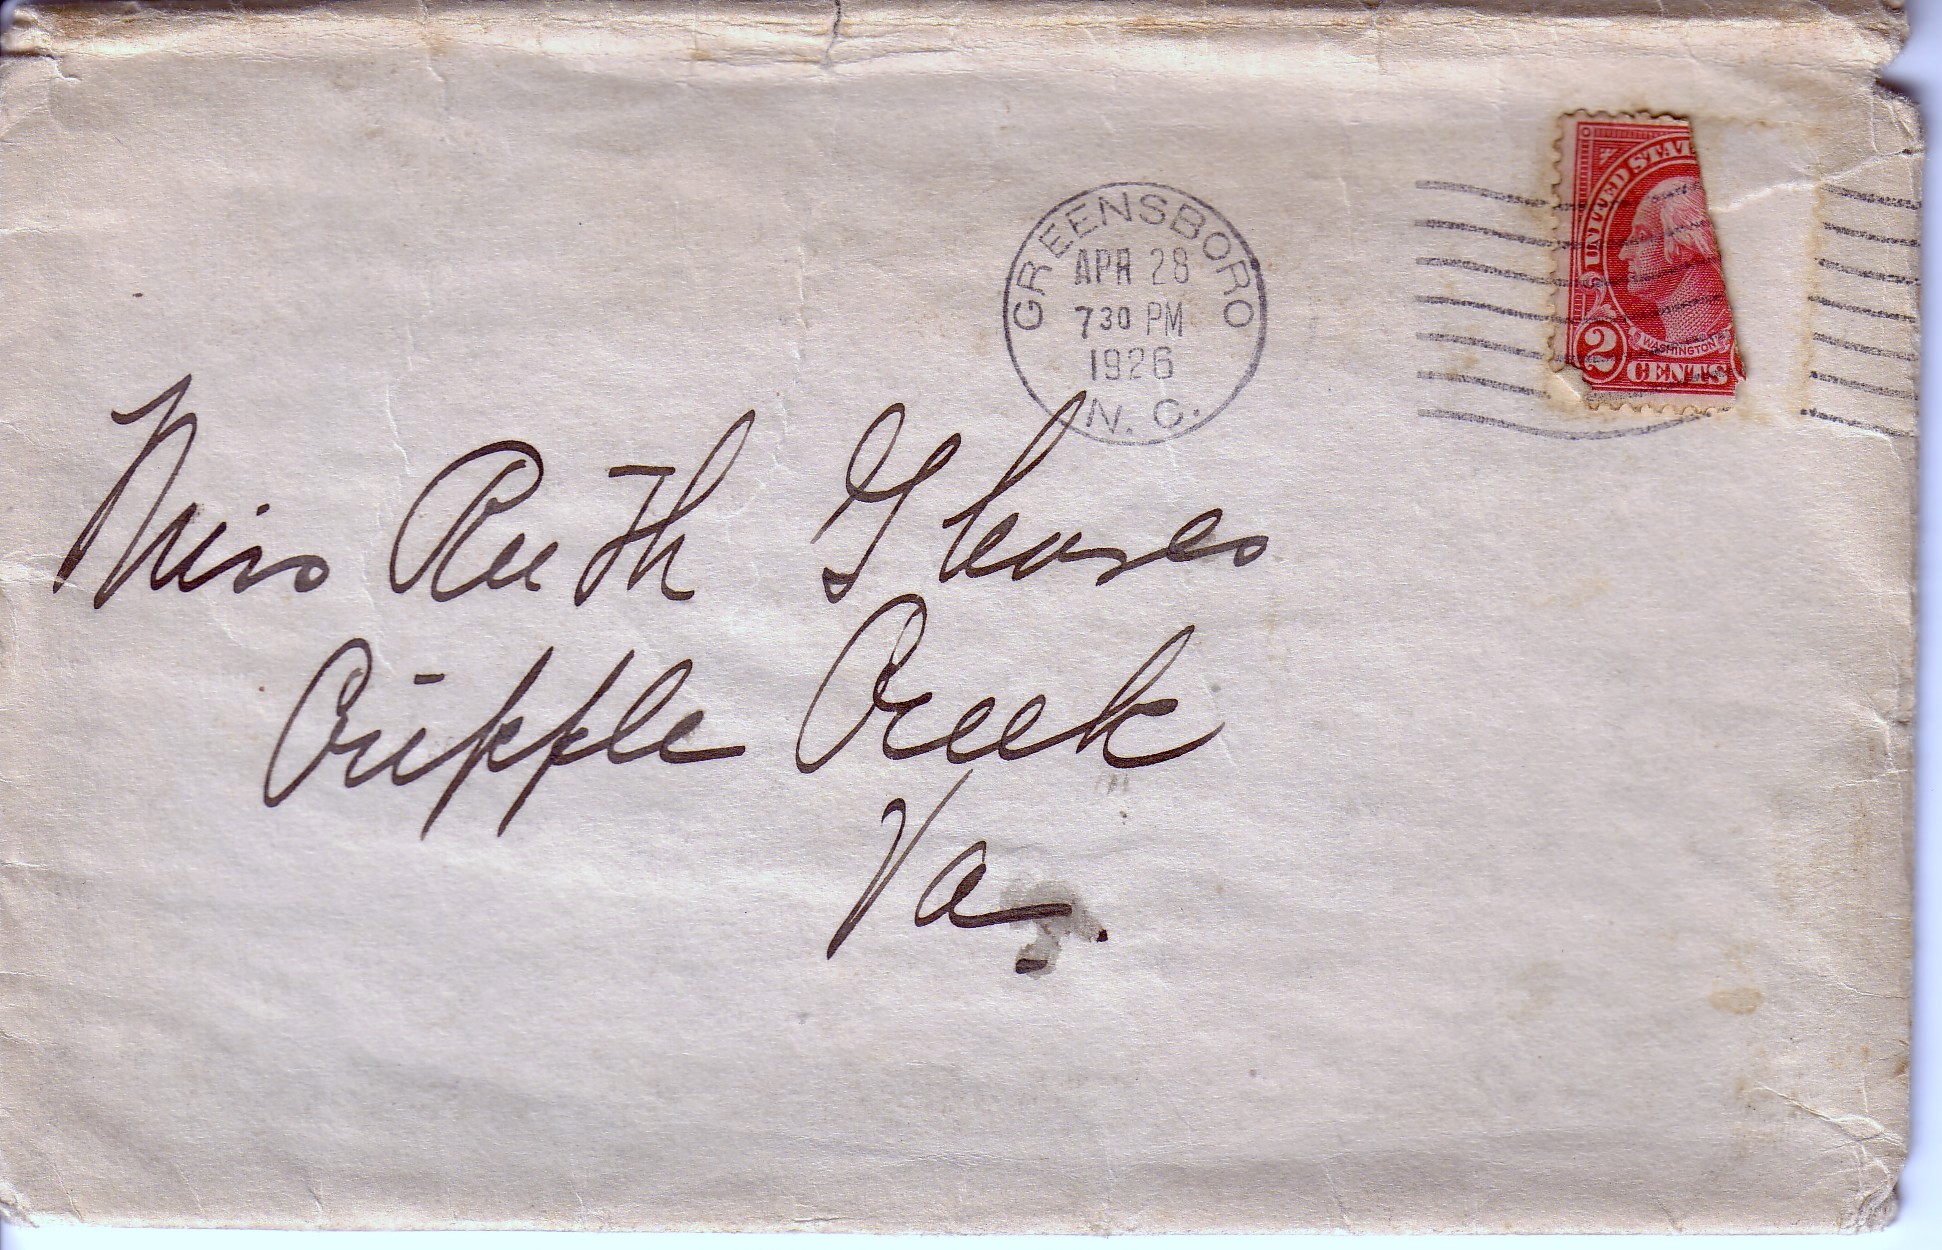 GREENSBORO
APR 28
7 30 PM
1926
N. C.
UNITED STAT
WASHINGTON
2 CENTS
Miss Ruth
Cripple Creek
Va.